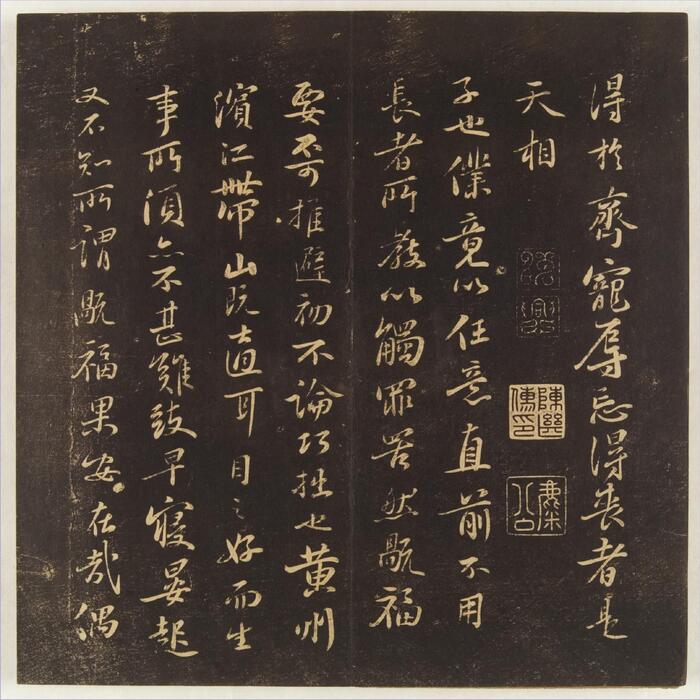 得於齊寵辱忘得喪者是
天相
子也僕竟以任意直前不用
長者所教以觸罪罟然旤福
要不可推避初不論巧拙也黃州
濱江帶山既適耳目之好而生
事所須亦不甚難致早寢晏起
又不知所謂旤福果安在哉偶